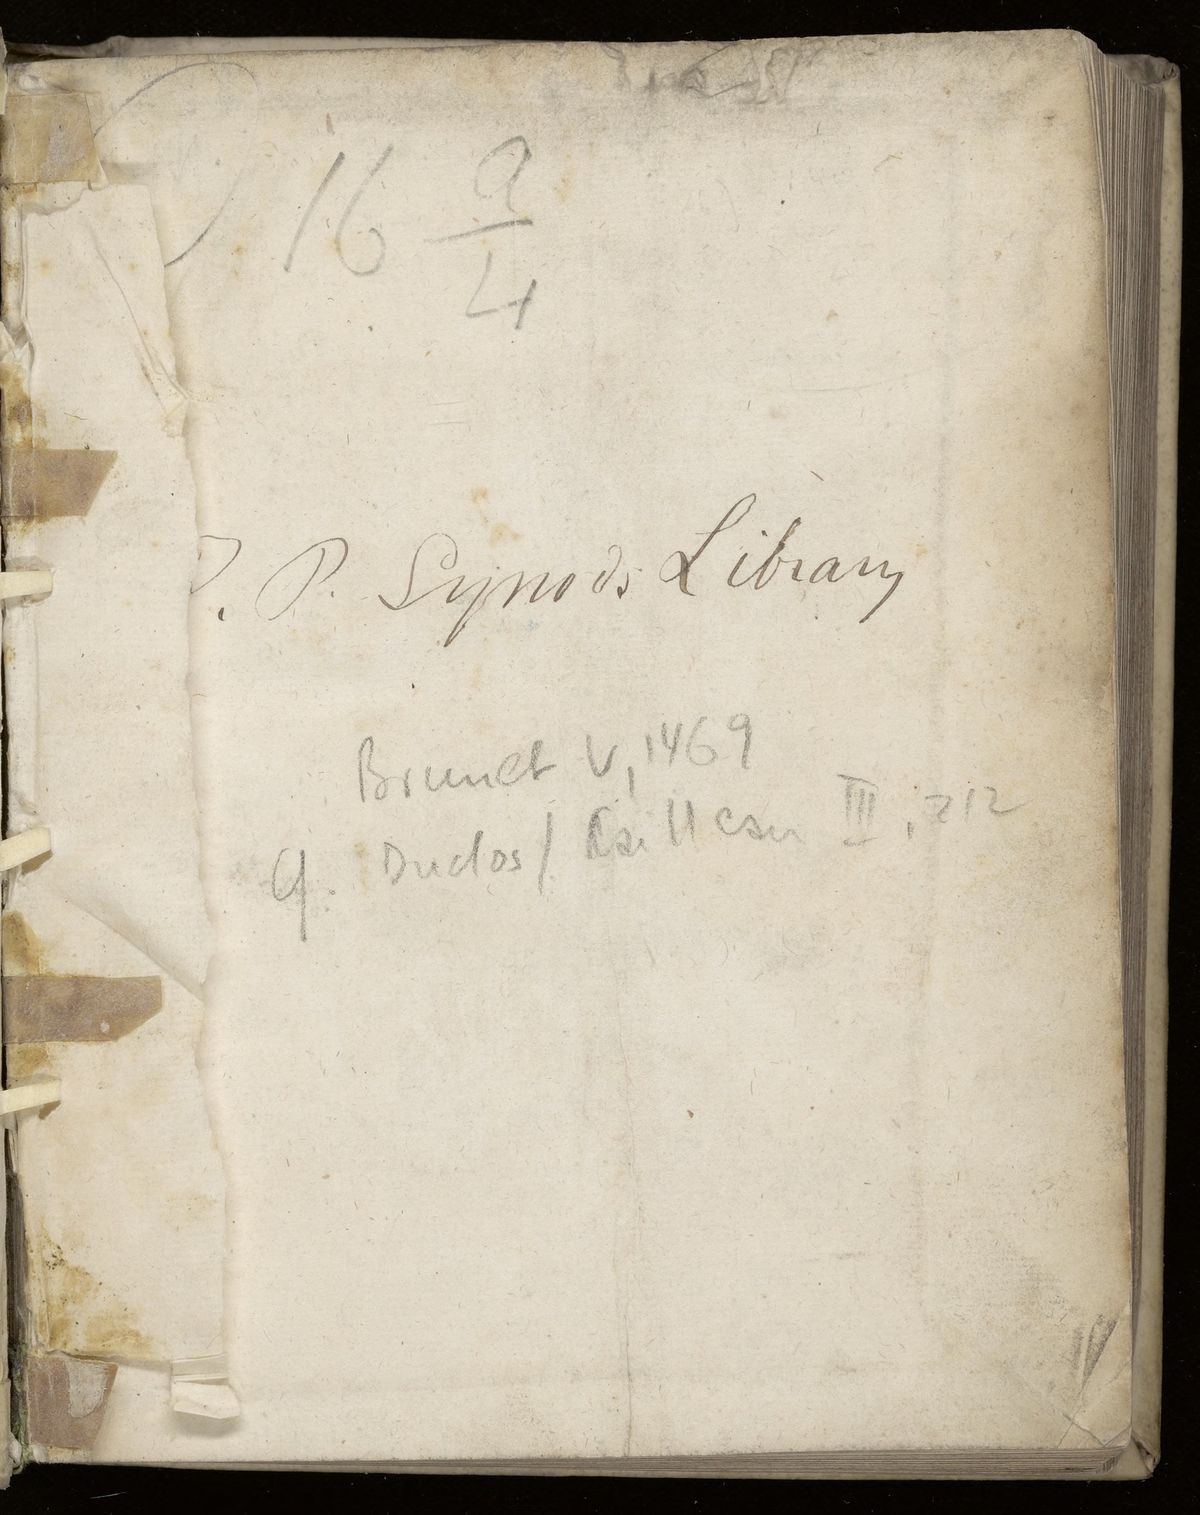 16 a
4
. P. Synods Library
Brunet V, 1469
Cf. Duclos / Cailleau III, 212